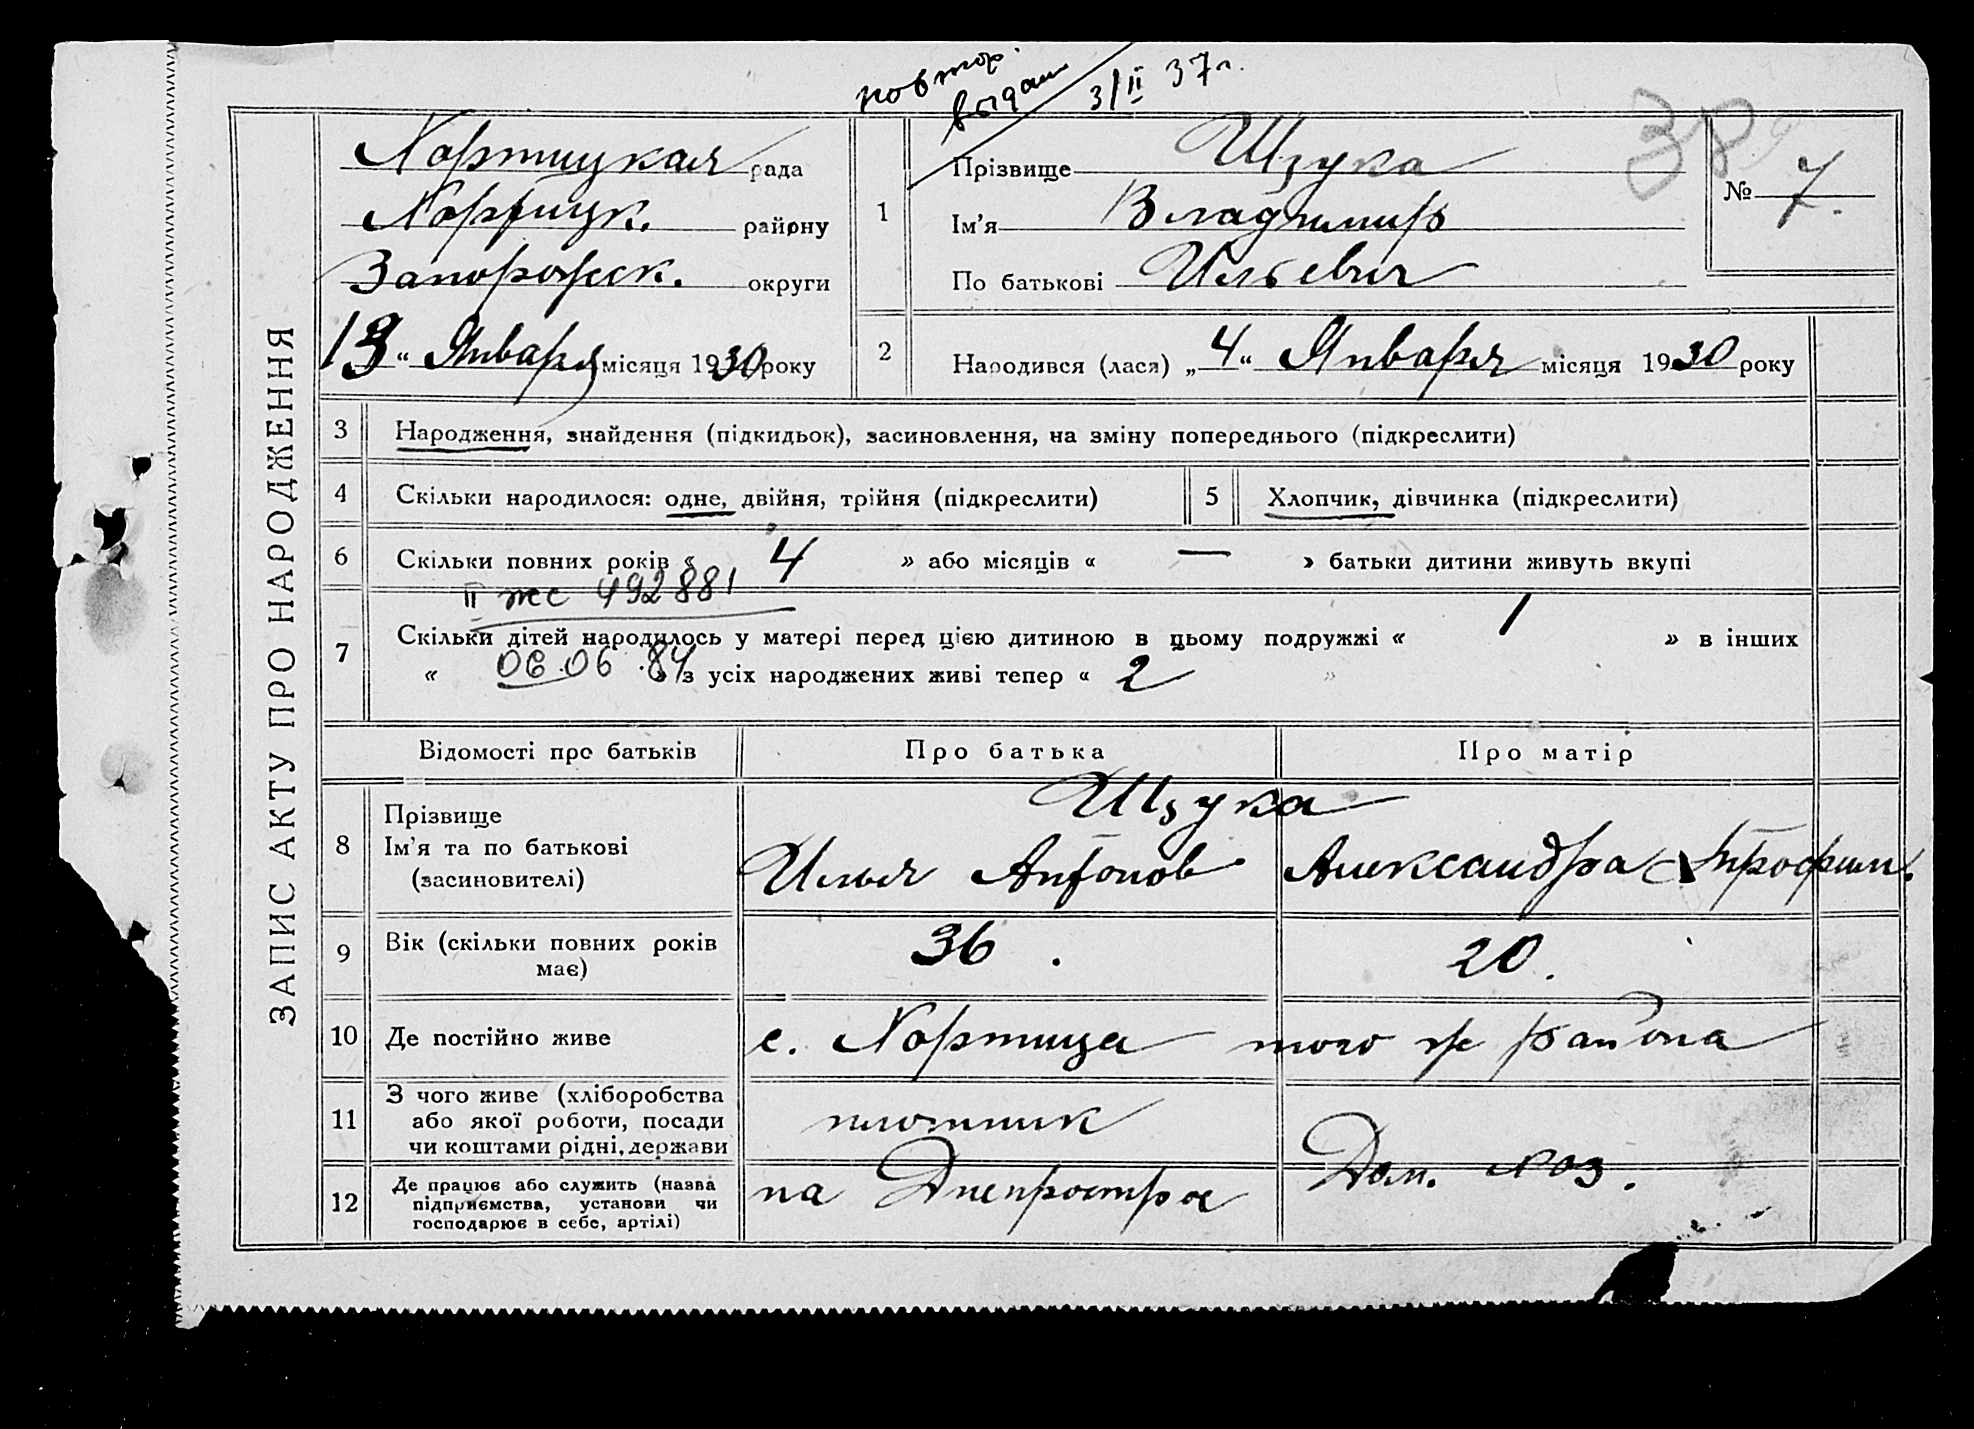 повтор.
выдан 3/II 37 г.
38
ЗАПИС АКТУ ПРО НАРОДЖЕННЯ
Хортицкая рада
Хортицк. району
Запорожск. округи
13 „ Января місяця 1930 року
1 Прізвище Щука
Ім'я Владимир
По батькові Ильевич
№ 7.
2 Народився (лася) „ 4 “ Января місяця 1930 року
3 Народження, знайдення (підкидьок), засиновлення, на зміну попереднього (підкреслити)
4 Скільки народилося: одне, двійня, трійня (підкреслити) 5 Хлопчик, дівчинка (підкреслити)
6 Скільки повних років « 4 » або місяців « — » батьки дитини живуть вкупі
II жс 492881
7 Скільки дітей народилось у матері перед цією дитиною в цьому подружжі « 1 » в інших
« 06.06.84 » з усіх народжених живі тепер « 2 »
Відомості про батьків Про батька Про матір
8 Прізвище Щука
Ім'я та по батькові Илья Антонов Александра Трофим.
(засиновителі)
9 Вік (скільки повних років має) 36. 20.
10 Де постійно живе с. Хортица того же района
11 З чого живе (хліборобства
або якої роботи, посади плотник
чи коштами рідні, держави
12 Де працює або служить (назва на Днепрострое Дом. хоз.
підприємства, установи чи
господарює в себе, артілі)